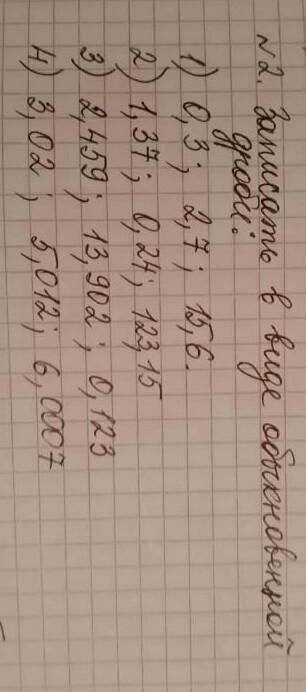 №2. Записать в виде обыкновенной
дроби:
1) 0,3; 2,7; 15,6.
2) 1,37; 0,24; 123,15
3) 2,459; 13,902; 0,123
4) 3,02; 5,012; 6,0007